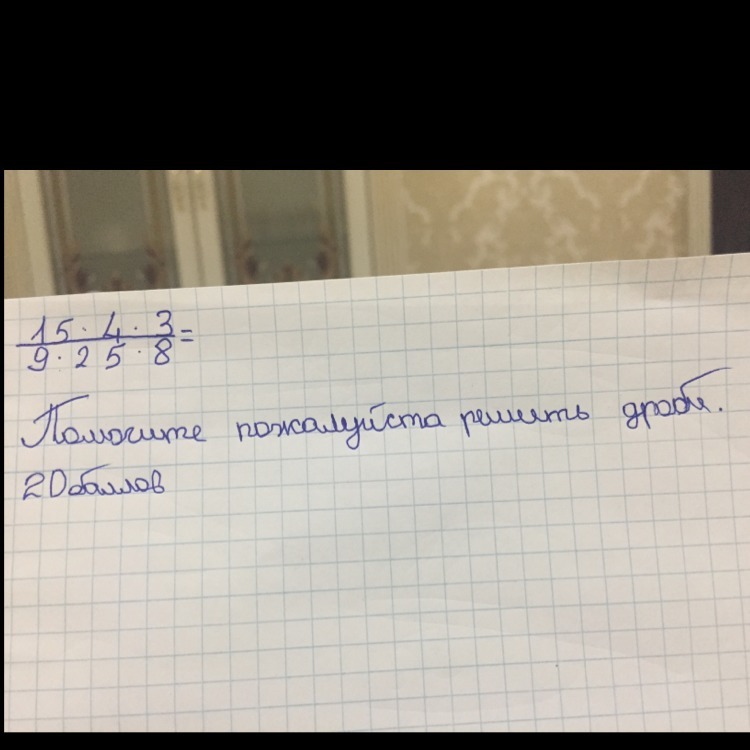 15 · 4 · 3
9 · 25 · 8 =
Помогите пожалуйста решить дроби.
20баллов